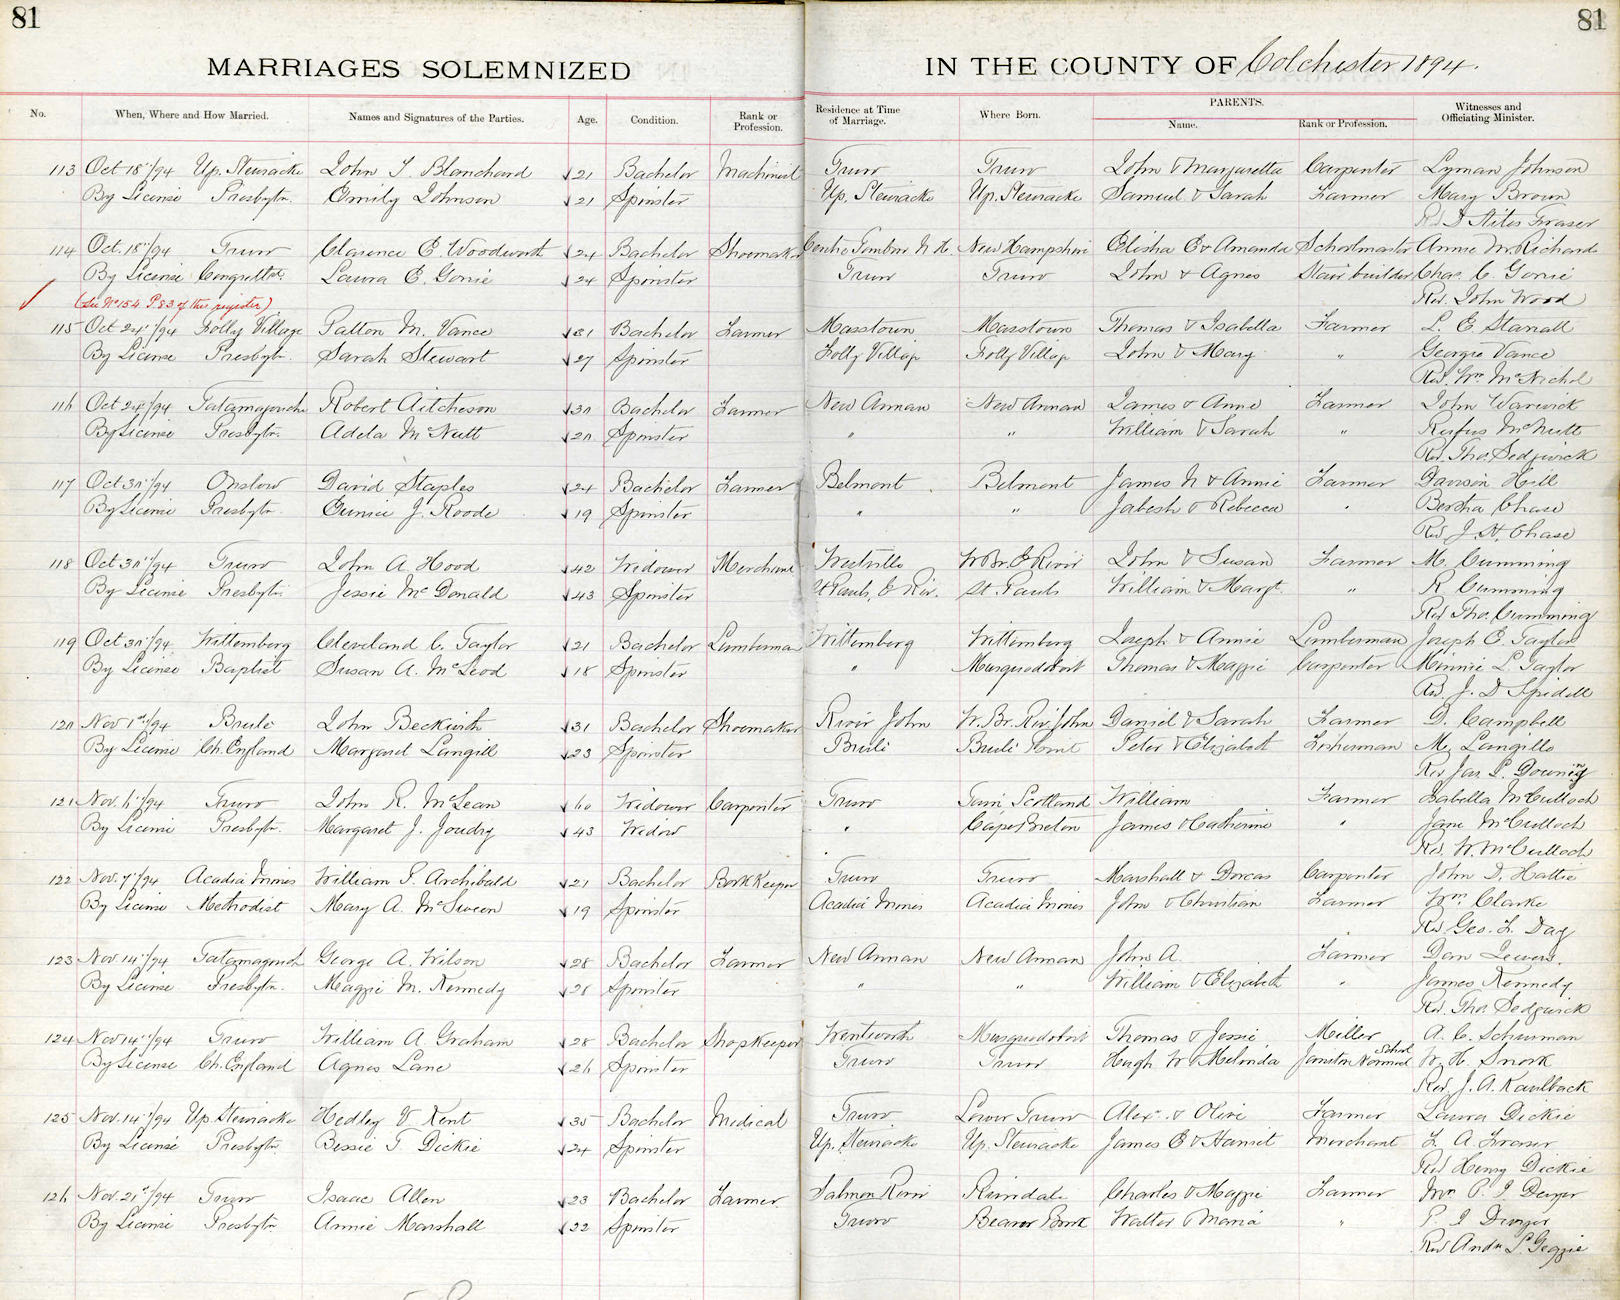 81
81
MARRIAGES SOLEMNIZED IN THE COUNTY OF Colchester 1894.
No. When, Where and How Married. Names and Signatures of the Parties. Age. Condition. Rank or Profession. Residence at Time of Marriage. Where Born. PARENTS. Name. Rank or Profession. Witnesses and Officiating Minister.
113 Oct 18"/94 Up. Stewiacke John S. Blanchard 21 Bachelor Machinist Truro Truro John & Margaretta Carpenter Lyman Johnson
By License Presbytn. Emily Johnson 21 Spinster Up. Stewiacke Up. Stewiacke Samuel & Sarah Farmer Mary Brown
Rev D Stiles Fraser
114 Oct. 18"/94 Truro Clarence E. Woodworth 24 Bachelor Shoemaker New Hampshire Elisha E & Amanda Schoolmaster Annie M. Richards
By License Laura E. Gorrie 24 Spinster Truro Truro John & Agnes Stair builder Chas. C. Gorrie
Rev. John Wood
(See No 154 P 83 of this register)
115 Oct 24"/94 Folly Village M. Vance 31 Bachelor Farmer Masstown Masstown Thomas & Isabella Farmer L. E.
By License Presbytn. Sarah Stewart 27 Spinster Folly Village Folly Village John & Mary " Georgie Vance
Rev. Wm McNichol
116 Oct 24"/94 Tatamagouche Robert Aitcheson 30 Bachelor Farmer New Annan New Annan James & Annie Farmer John Warwick
By License Presbytn. Adela McNutt 20 Spinster " " William & Sarah " Rufus McNutt
Rev. Tho. Sedgwick
117 Oct 30"/94 Onslow David Staples 24 Bachelor Farmer Belmont Belmont James N & Annie Farmer Dawson Hill
By License Presbytn. Eunice J. Roode 19 Spinster " " Jabesh & Rebecca " Bertha Chase
Rev J. H. Chase
118 Oct 30"/94 Truro John A. Hood 42 Widower Merchant Westville W Br. E River John & Susan Farmer M. Cumming
By License Presbytn. Jessie McDonald 43 Spinster St Pauls, E Riv. St. Pauls William & Margt. " R Cumming
Rev Tho. Cumming
119 Oct 30"/94 Wittemberg Cleveland C. Taylor 21 Bachelor Lumberman Wittemberg Wittemberg Joseph & Annie Lumberman Joseph E. Taylor
By License Baptist Susan A. McLeod 18 Spinster " Musquodoboit Thomas & Maggie Carpenter Minnie L. Taylor
Rev. J. D Spidell
120 Nov 1st/94 Brule John Beckwith 31 Bachelor Shoemaker River John W. Br. Riv. John Daniel & Sarah Farmer D. Campbell
By License Ch. England Margaret Langill 23 Spinster Brule Brule Point Peter & Elizabeth Fisherman M. Langille
Rev Jas P. Downing
121 Nov. 6"/94 Truro John R. McLean 60 Widower Carpenter Truro Scotland William Farmer Isabella McCulloch
By License Presbytn. Margaret J. Joudry 43 Widow " Cape Breton James & Catherine " Jane McCulloch
Rev. W. McCulloch
122 Nov. 7"/94 Acadia Mines William P. Archibald 21 Bachelor Book Keeper Truro Truro Marshall & Dorcas Carpenter John D. Hattie
By License Methodist Mary A. McSween 19 Spinster Acadia Mines Acadia Mines John & Christian Farmer Wm. Clarke
Rev Geo. F. Day
123 Nov. 14"/94 Tatamagouch George A. Wilson 28 Bachelor Farmer New Annan New Annan John A. Farmer Dan
By License Presbytn. Maggie M. Kennedy 28 Spinster " " William & Elizabeth " James Kennedy
Rev. Tho. Sedgwick
124 Nov 14"/94 Truro William A. Graham 28 Bachelor Shopkeeper Wentworth Musquodoboit Thomas & Jessie Miller A. C. Schurman
By License Ch. England Agnes Lane 26 Spinster Truro Truro Hugh W & Melinda Janitor Normal School W. H. Snook
Rev. J. A. Kaulback
125 Nov. 14"/94 Up. Stewiacke Hedley V Kent 35 Bachelor Medical Truro Lower Truro Alex. & Olive Farmer Laura Dickie
By License Presbytn. Bessie T. Dickie 24 Spinster Up. Stewiacke Up. Stewiacke James E & Harriet Merchant F. A. Fraser
Rev Henry Dickie
126 Nov. 21st/94 Truro Isaac Allen 23 Bachelor Farmer Salmon River Riversdale Charles & Maggie Farmer Mrs P. I. Dwyer
By License Presbytn. Annie Marshall 22 Spinster Truro Beaver Brook Walter & Maria " P. I Dwyer
Rev Andw L. Geggie